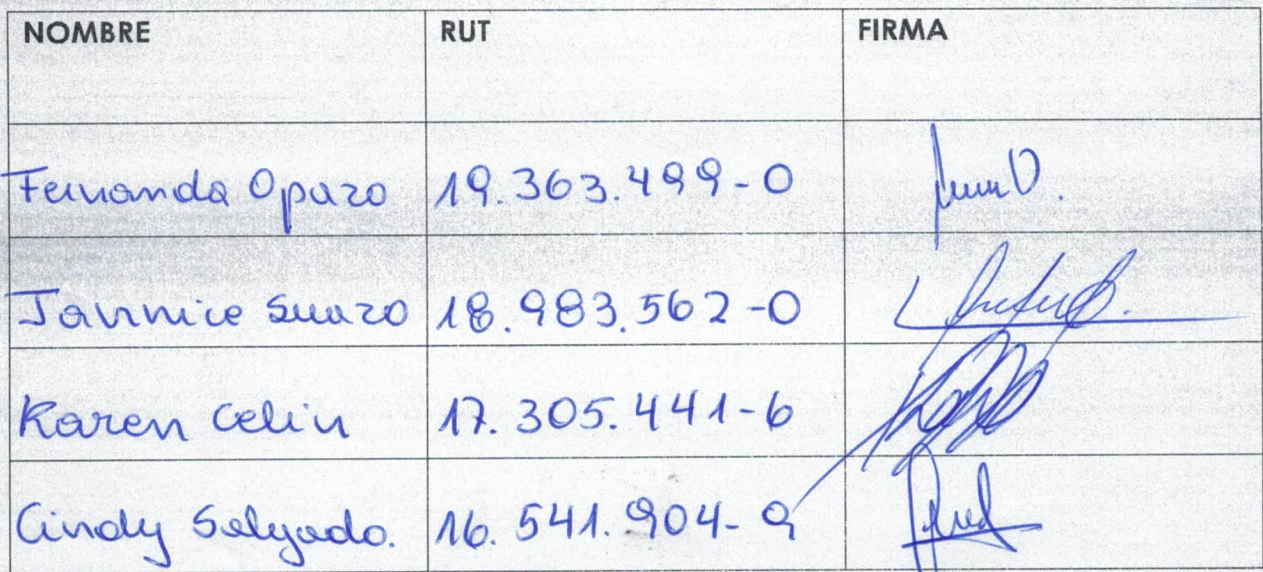 NOMBRE RUT FIRMA
Fernanda Opazo 19.363.499-0
Jannice Suazo 18.983.562-0
Karen Celin 17.305.441-6
Cindy Salgado. 16.541.904-9